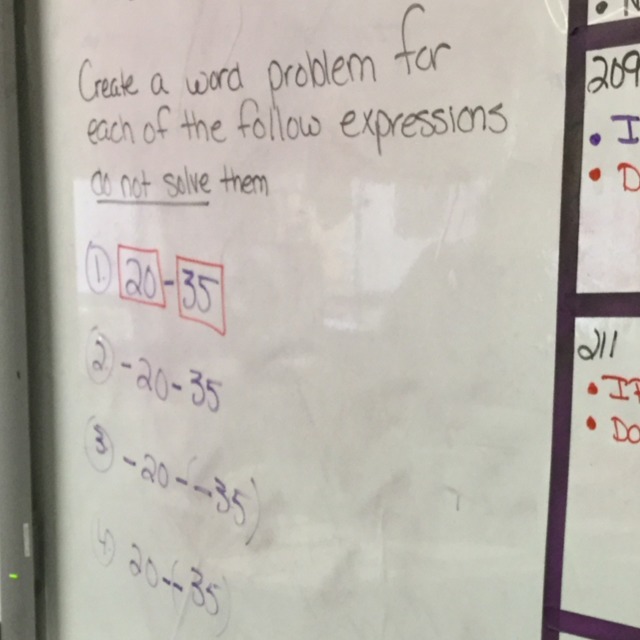 Create a word problem for
each of the follow expressions
do not solve them
① 20-35
② -20-35
③ -20-(-35)
④ 20-(-35)
209
• I
• D
211
• IF
• DO